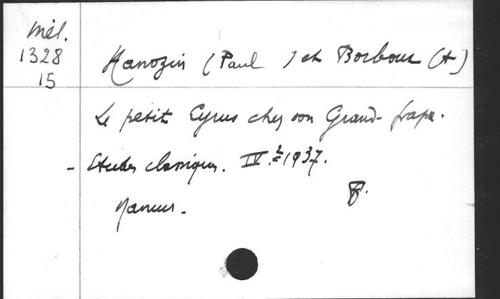 Mél.
1328
15
Hanozin (Paul) et Borboux (A)
Le petit Cyrus chez son Grand-papa.
- Etudes classiques. IV. 1937.
Namur.